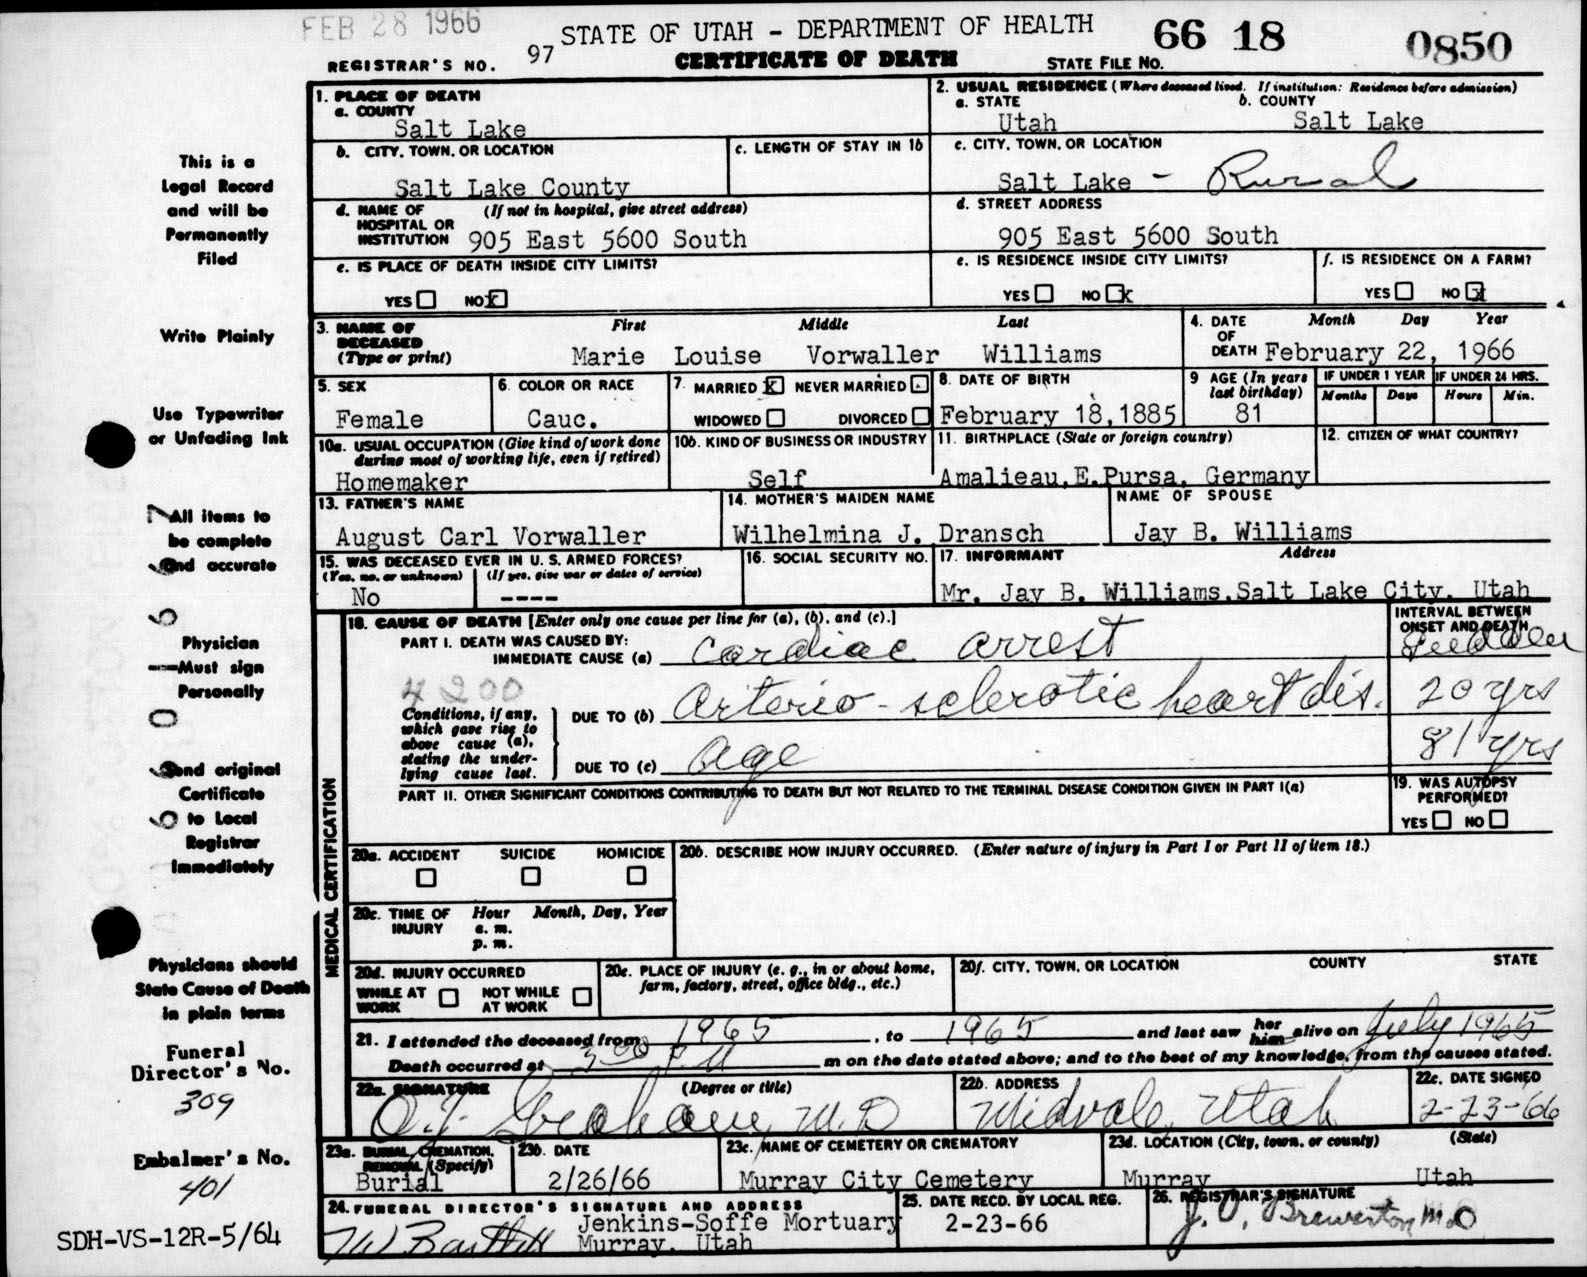 FEB 28 1966
STATE OF UTAH - DEPARTMENT OF HEALTH
66 18 0850
REGISTRAR'S NO. 97
CERTIFICATE OF DEATH
STATE FILE NO.
1. PLACE OF DEATH
a. COUNTY
Salt Lake
2. USUAL RESIDENCE (Where deceased lived. If institution: Residence before admission)
a. STATE b. COUNTY
Utah Salt Lake
b. CITY, TOWN, OR LOCATION
Salt Lake County
c. LENGTH OF STAY IN 1b
c. CITY, TOWN, OR LOCATION
Salt Lake - Rural
d. NAME OF (If not in hospital, give street address)
HOSPITAL OR
INSTITUTION 905 East 5600 South
d. STREET ADDRESS
905 East 5600 South
e. IS PLACE OF DEATH INSIDE CITY LIMITS?
YES NO x
e. IS RESIDENCE INSIDE CITY LIMITS?
YES NO x
f. IS RESIDENCE ON A FARM?
YES NO x
3. NAME OF First Middle Last
DECEASED
(Type or print) Marie Louise Vorwaller Williams
4. DATE Month Day Year
OF
DEATH February 22, 1966
5. SEX
Female
6. COLOR OR RACE
Cauc.
7. MARRIED x NEVER MARRIED
WIDOWED DIVORCED
8. DATE OF BIRTH
February 18,1885
9 AGE (In years
last birthday)
81
IF UNDER 1 YEAR IF UNDER 24 HRS.
Months Days Hours Min.
10a. USUAL OCCUPATION (Give kind of work done
during most of working life, even if retired)
Homemaker
10b. KIND OF BUSINESS OR INDUSTRY
Self
11. BIRTHPLACE (State or foreign country)
Amalieau,E.Pursa, Germany
12. CITIZEN OF WHAT COUNTRY?
13. FATHER'S NAME
August Carl Vorwaller
14. MOTHER'S MAIDEN NAME
Wilhelmina J. Dransch
NAME OF SPOUSE
Jay B. Williams
15. WAS DECEASED EVER IN U. S. ARMED FORCES?
(Yes, no, or unknown) (If yes, give war or dates of service)
No ----
16. SOCIAL SECURITY NO.
17. INFORMANT Address
Mr. Jay B. Williams,Salt Lake City, Utah
MEDICAL CERTIFICATION
18. CAUSE OF DEATH [Enter only one cause per line for (a), (b), and (c).]
INTERVAL BETWEEN
ONSET AND DEATH
PART I. DEATH WAS CAUSED BY:
IMMEDIATE CAUSE (a) Cardiac arrest Sudden
4200
Conditions, if any,
which gave rise to
above cause (a),
stating the under-
lying cause last.
DUE TO (b) Arterio - sclerotic heart dis. 20 yrs
DUE TO (c) age 81 yrs
PART II. OTHER SIGNIFICANT CONDITIONS CONTRIBUTING TO DEATH BUT NOT RELATED TO THE TERMINAL DISEASE CONDITION GIVEN IN PART I(a)
19. WAS AUTOPSY
PERFORMED?
YES NO
20a. ACCIDENT SUICIDE HOMICIDE
20b. DESCRIBE HOW INJURY OCCURRED. (Enter nature of injury in Part I or Part II of item 18.)
20c. TIME OF Hour Month, Day, Year
INJURY a. m.
p. m.
20d. INJURY OCCURRED
WHILE AT NOT WHILE
WORK AT WORK
20e. PLACE OF INJURY (e. g., in or about home,
farm, factory, street, office bldg., etc.)
20f. CITY, TOWN, OR LOCATION COUNTY STATE
21. I attended the deceased from 1965, to 1965 and last saw her him alive on July 1965
Death occurred at 3:00 P.M m on the date stated above; and to the best of my knowledge, from the causes stated.
22a. SIGNATURE (Degree or title)
M.D
22b. ADDRESS
Midvale, Utah
22c. DATE SIGNED
2-23-66
23a. BURIAL, CREMATION,
REMOVAL (Specify)
Burial
23b. DATE
2/26/66
23c. NAME OF CEMETERY OR CREMATORY
Murray City Cemetery
23d. LOCATION (City, town, or county) (State)
Murray Utah
24. FUNERAL DIRECTOR'S SIGNATURE AND ADDRESS
Jenkins-Soffe Mortuary
Murray, Utah
25. DATE RECD. BY LOCAL REG.
2-23-66
26. REGISTRAR'S SIGNATURE
J. Brewerton M.D
This is a
Legal Record
and will be
Permanently
Filed
Write Plainly
Use Typewriter
or Unfading Ink
All items to
be complete
and accurate
Physician
Must sign
Personally
Send original
Certificate
to Local
Registrar
Immediately
Physicians should
State Cause of Death
in plain terms
Funeral
Director's No.
309
Embalmer's No.
401
SDH-VS-12R-5/64